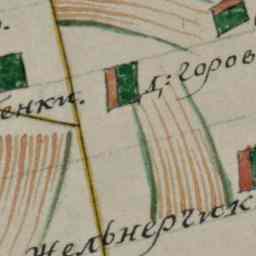 енки.
д: горов
жельнерчик